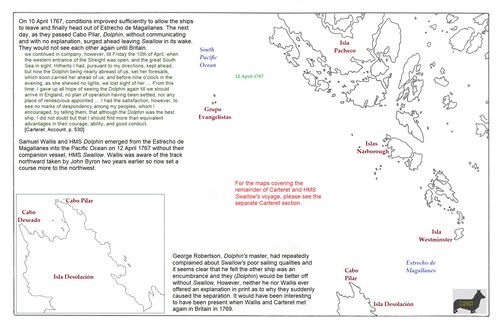 On 10 April 1767, conditions improved sufficiently to allow the ships
to leave and finally head out of Estrecho de Magallanes. The next
day, as they passed Cabo Pilar, Dolphin, without communicating
and with no explanation, surged ahead leaving Swallow in its wake.
They would not see each other again until Britain.
we continued in company, however, till Friday the 10th of April, when
the western entrance of the Streight was open, and the great South
Sea in sight. Hitherto I had, pursuant to my directions, kept ahead,
but now the Dolphin being nearly abreast of us, set her foresails,
which soon carried her ahead of us; and before nine o'clock in the
evening, as she shewed no lights, we lost sight of her ... From this
time, I gave up all hope of seeing the Dolphin again till we should
arrive in England, no plan of operation having been settled, nor any
place of rendezvous appointed ... I had the satisfaction, however, to
see no marks of despondency among my peoples, whom I
encouraged, by telling them, that although the Dolphin was the best
ship, I did not doubt but that I should find more than equivalent
advantages in their courage, ability, and good conduct.
[Carteret. Account. p. 530]
Samuel Wallis and HMS Dolphin emerged from the Estrecho de
Magallanes into the Pacific Ocean on 12 April 1767 without their
companion vessel, HMS Swallow. Wallis was aware of the track
northward taken by John Byron two years earlier so now set a
course more to the northwest.
South
Pacific
Ocean
12 April 1767
Isla
Pacheco
Grupo
Evangelistas
Islas
Narborough
For the maps covering the
remainder of Carteret and HMS
Swallow's voyage, please see the
separate Carteret section.
Isla
Westminster
Estrecho de
Magallanes
Cabo Pilar
Cabo
Deseado
Isla Desolación
George Robertson, Dolphin's master, had repeatedly
complained about Swallow's poor sailing qualities and
it seems clear that he felt the other ship was an
encumbrance and they (Dolphin) would be better off
without Swallow. However, neither he nor Wallis ever
offered an explanation in print as to why they suddenly
caused the separation. It would have been interesting
to have been present when Wallis and Carteret met
again in Britain in 1769.
Cabo
Pilar
Isla Desolación